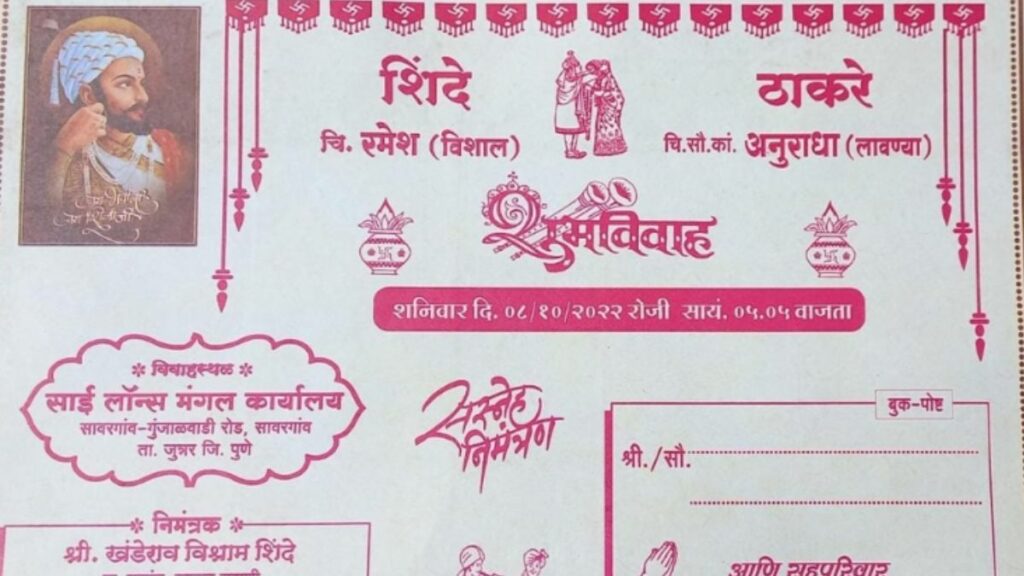 शिंदे
ठाकरे
चि. रमेश (विशाल)
चि.सौ.कां. अनुराधा (लावण्या)
शुभविवाह
शनिवार दि. ०८/१०/२०२२ रोजी सायं. ०५.०५ वाजता
विवाहस्थळ
साई लॉन्स मंगल कार्यालय
सावरगांव-गुंजाळवाडी रोड, सावरगांव
ता. जुन्नर जि. पुणे
सस्नेह
निमंत्रण
बुक-पोष्ट
श्री./सौ.
निमंत्रक
श्री. खंडेराव विश्राम शिंदे
आणि सहपरिवार